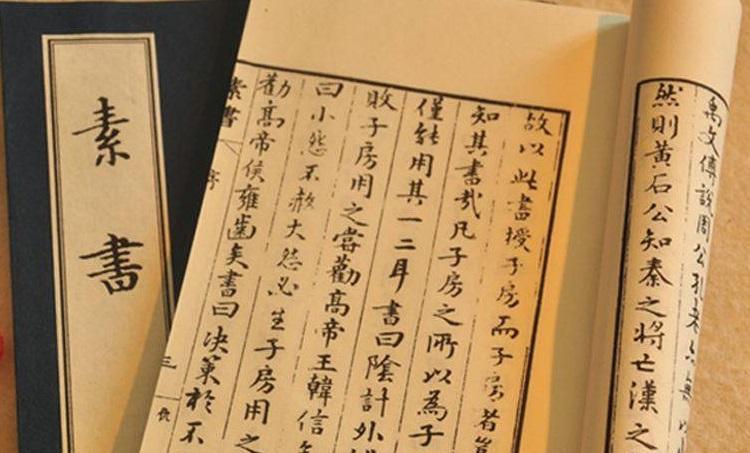 素書
禹文傅說周公孔老亦無以
然則黃石公知秦之將亡漢之
故以此書授子房而子房者豈
知其書哉凡子房之所以為子
僅能用其一二耳書曰陰計外
敗子房用之嘗勸高帝王韓信
曰小怨不赦大怨必生子房用之
勸高帝侯雍齒矣書曰決策於不
素書 序 三